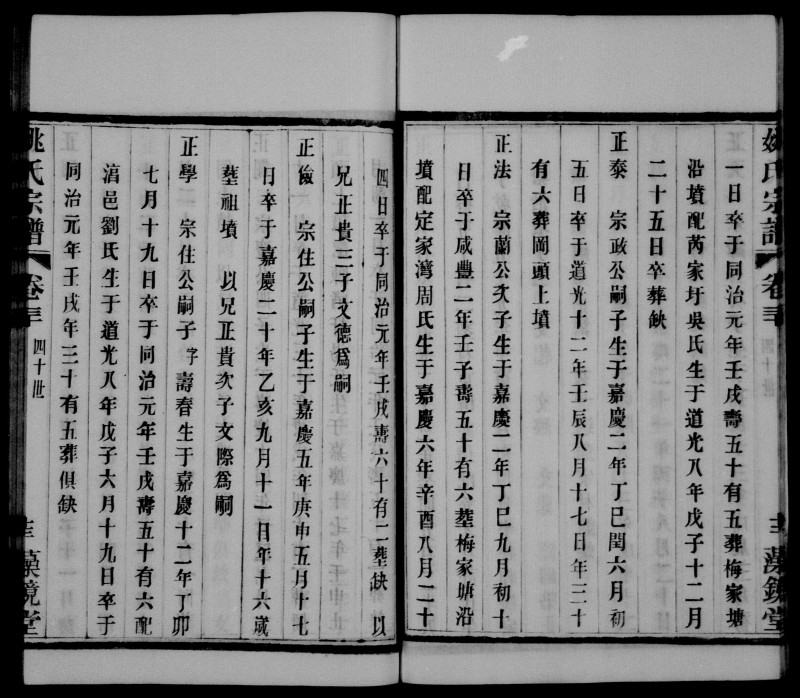 姚氏宗譜
卷三
四十世
藻鏡堂
一日卒于同治元年壬戌壽五十有五葬梅家塘
沿墳配芮家圩吳氏生于道光八年戊子十二月
二十五日卒葬缺
正泰 宗政公嗣子生于嘉慶二年丁巳閏六月初
五日卒于道光十二年壬辰八月十七日年三十
有六葬岡頭上墳
正法 宗蘭公次子生于嘉慶二年丁巳九月初十
日卒于咸豐二年壬子壽五十有六塟梅家塘沿
墳配定家灣周氏生于嘉慶六年辛酉八月二十
四日卒于同治元年壬戌壽六十有二塟缺 以
兄正貴三子文德爲嗣
正儉 宗住公嗣子生于嘉慶五年庚申五月十七
日卒于嘉慶二十年乙亥九月十一日年十六歲
塟祖墳 以兄正貴次子文際爲嗣
正學 宗住公嗣子字壽春生于嘉慶十二年丁卯
七月十九日卒于同治元年壬戌壽五十有六配
湻邑劉氏生于道光八年戊子六月十九日卒于
同治元年壬戌年三十有五葬俱缺
姚氏宗譜
卷三
四十世
藻鏡堂